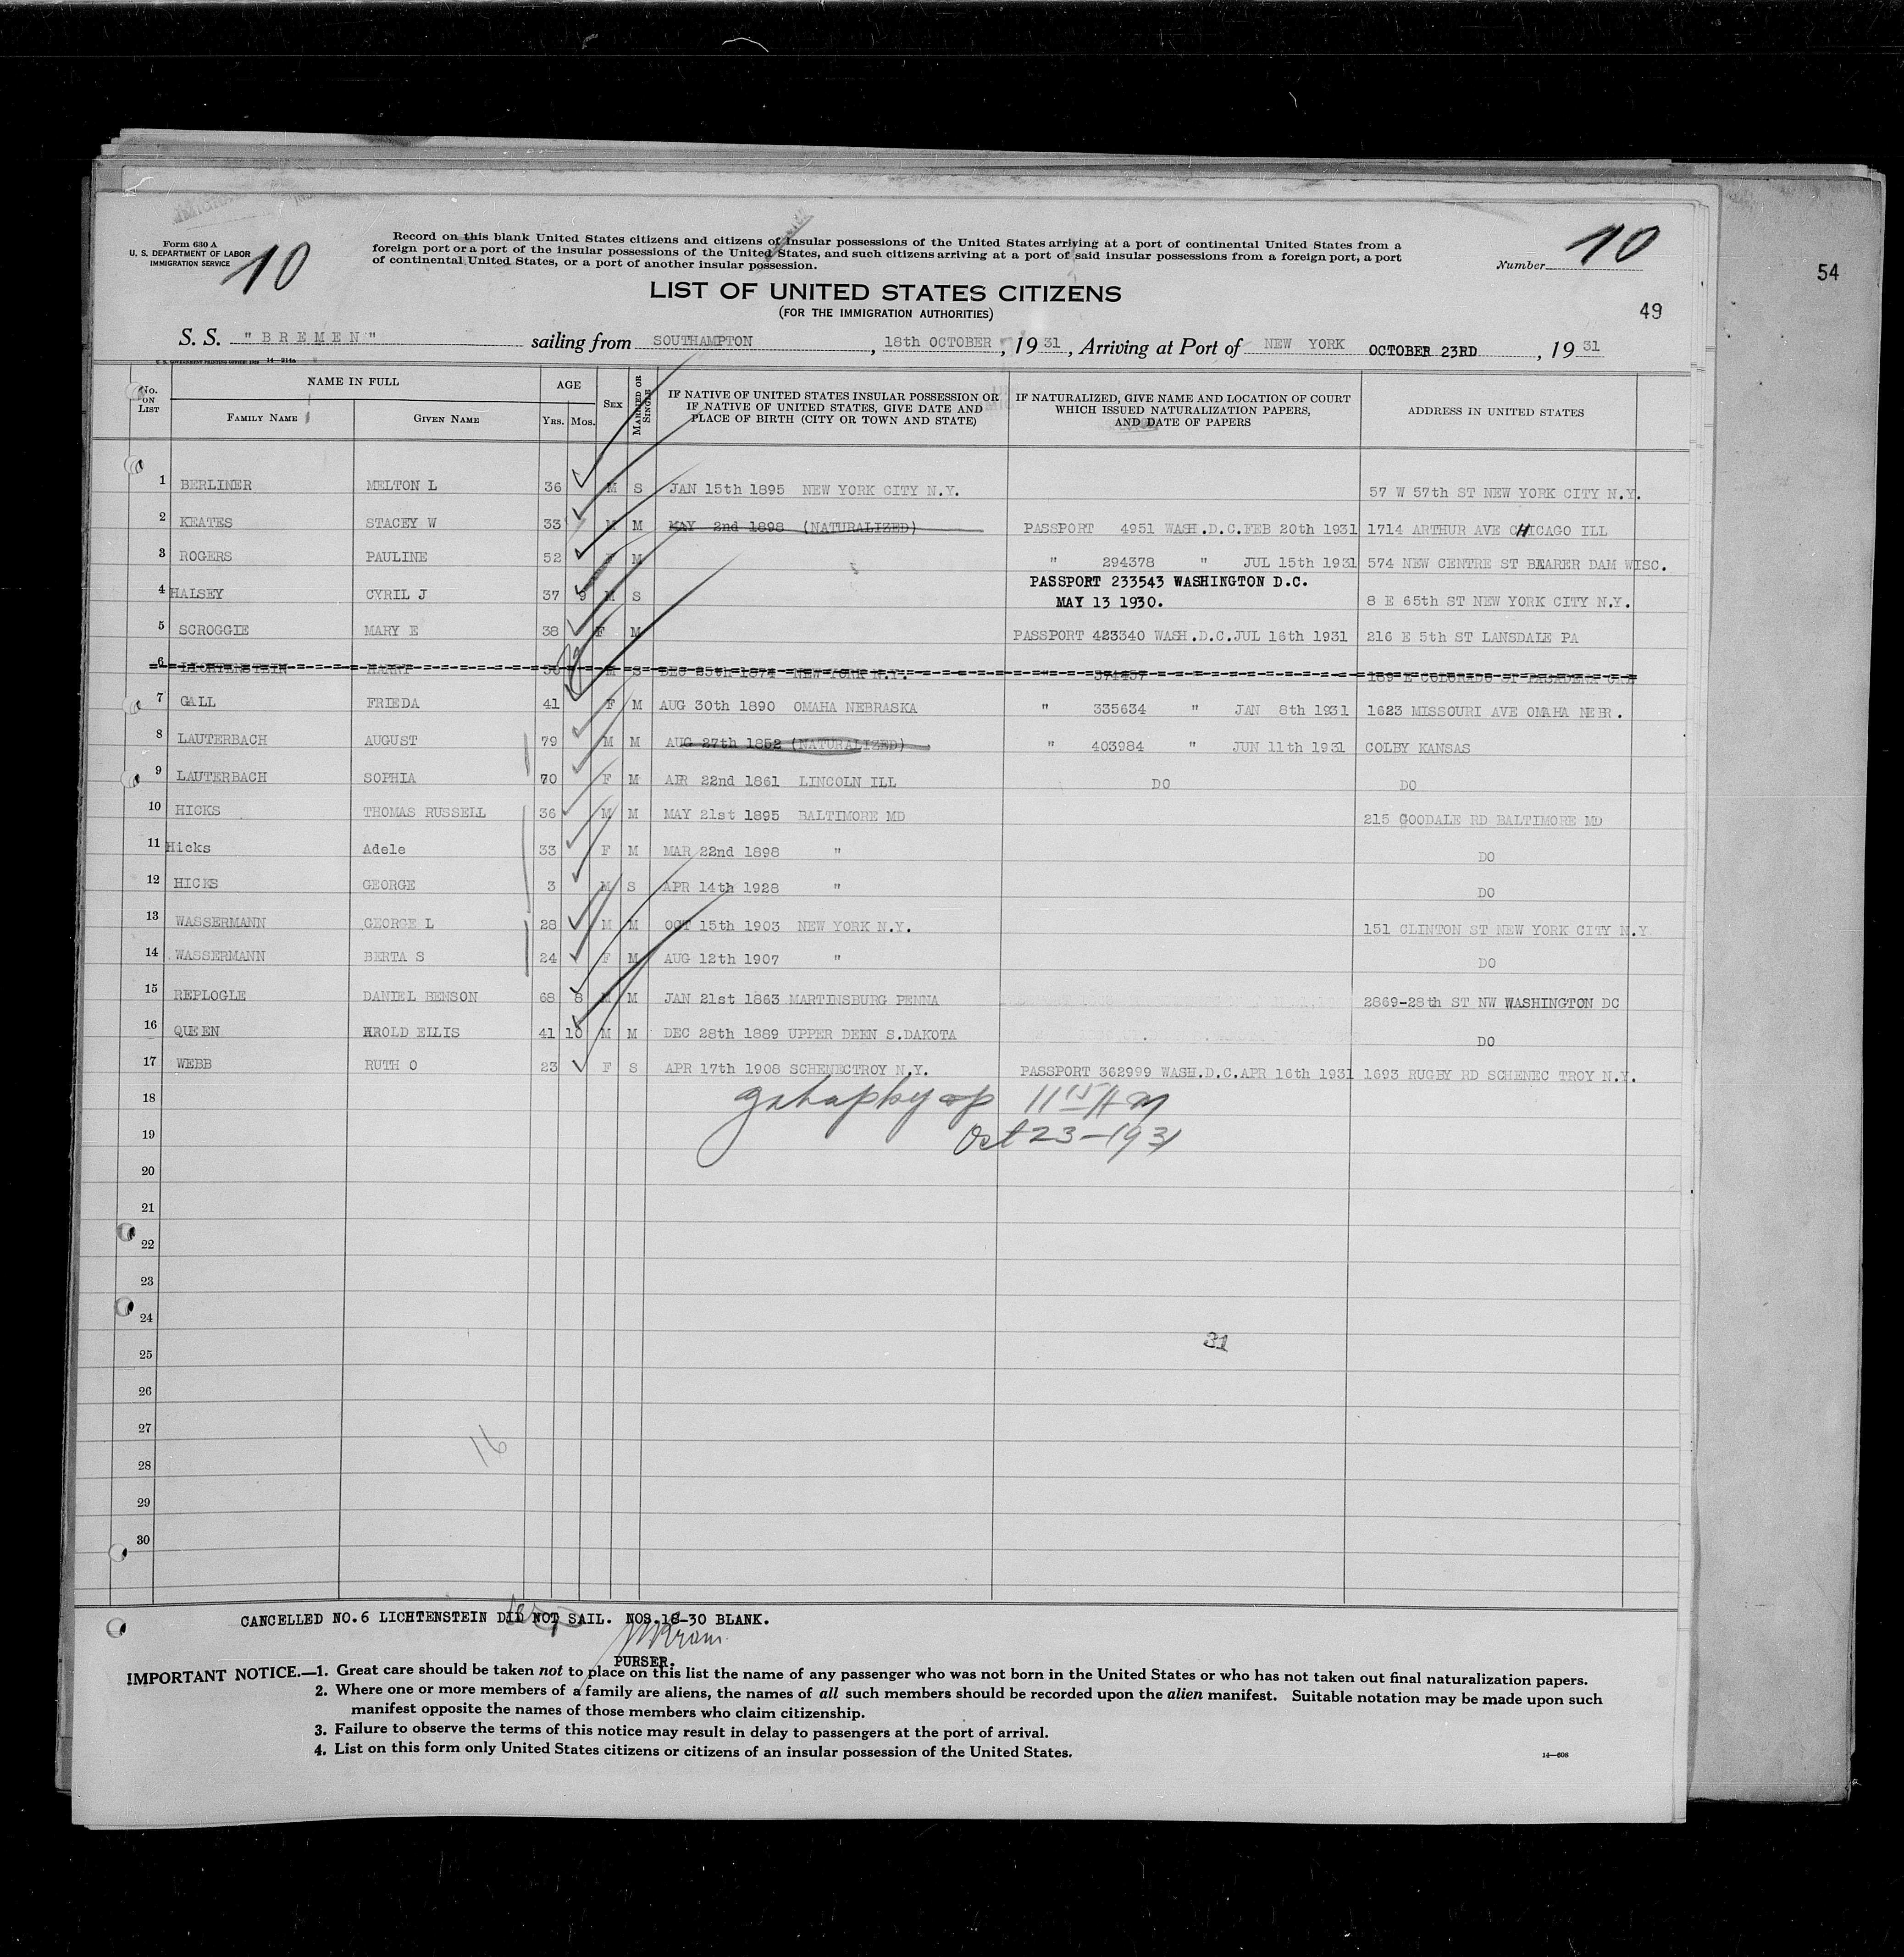 Form 630 A
U. S. DEPARTMENT OF LABOR
IMMIGRATION SERVICE
10
Record on this blank United States citizens and citizens of insular possessions of the United States arriving at a port of continental United States from a
foreign port or a port of the insular possessions of the United States, and such citizens arriving at a port of said insular possessions from a foreign port, a port
of continental United States, or a port of another insular possession.
Number 10
54
49
LIST OF UNITED STATES CITIZENS
(FOR THE IMMIGRATION AUTHORITIES)
S. S. "BREMEN" sailing from SOUTHAMPTON, 18th OCTOBER, 1931, Arriving at Port of NEW YORK OCTOBER 23RD, 1931
14-214a
No. ON LIST NAME IN FULL AGE SEX MARRIED OR SINGLE IF NATIVE OF UNITED STATES INSULAR POSSESSION OR IF NATIVE OF UNITED STATES, GIVE DATE AND PLACE OF BIRTH (CITY OR TOWN AND STATE) IF NATURALIZED, GIVE NAME AND LOCATION OF COURT WHICH ISSUED NATURALIZATION PAPERS, AND DATE OF PAPERS ADDRESS IN UNITED STATES
FAMILY NAME GIVEN NAME YRS. MOS.
1 BERLINER MELTON L 36 M S JAN 15th 1895 NEW YORK CITY N.Y. 57 W 57th ST NEW YORK CITY N.Y.
2 KEATES STACEY W 33 M M MAY 2nd 1898 (NATURALIZED) PASSPORT 4951 WASH.D.C.FEB 20th 1931 1714 ARTHUR AVE CHICAGO ILL
3 ROGERS PAULINE 52 F M " 294378 " JUL 15th 1931 574 NEW CENTRE ST BEARER DAM WISC.
4 HALSEY CYRIL J 37 9 M S PASSPORT 233543 WASHINGTON D.C. MAY 13 1930. 8 E 65th ST NEW YORK CITY N.Y.
5 SCROGGIE MARY E 38 F M PASSPORT 423340 WASH.D.C.JUL 16th 1931 216 E 5th ST LANSDALE PA
6 LICHTENSTEIN HARRY 56 M S DEC 25th 1874 NEW YORK N.Y. " 374437 189 E COLORADO ST PASADENA CAL
7 GALL FRIEDA 41 F M AUG 30th 1890 OMAHA NEBRASKA " 335634 " JAN 8th 1931 1623 MISSOURI AVE OMAHA NEBR.
8 LAUTERBACH AUGUST 79 M M AUG 27th 1852 (NATURALIZED) " 403984 " JUN 11th 1931 COLBY KANSAS
9 LAUTERBACH SOPHIA 70 F M APR 22nd 1861 LINCOLN ILL DO DO
10 HICKS THOMAS RUSSELL 36 M M MAY 21st 1895 BALTIMORE MD 215 GOODALE RD BALTIMORE MD
11 Hicks Adele 33 F M MAR 22nd 1898 " DO
12 HICKS GEORGE 3 M S APR 14th 1928 " DO
13 WASSERMANN GEORGE L 28 M M OCT 15th 1903 NEW YORK N.Y. 151 CLINTON ST NEW YORK CITY N.Y
14 WASSERMANN BERTA S 24 F M AUG 12th 1907 " DO
15 REPLOGLE DANIEL BENSON 68 8 M M JAN 21st 1863 MARTINSBURG PENNA 2869-28th ST NW WASHINGTON DC
16 QUEEN HAROLD ELLIS 41 10 M M DEC 28th 1889 UPPER DEEN S.DAKOTA DO
17 WEBB RUTH O 23 F S APR 17th 1908 SCHENECTROY N.Y. PASSPORT 362999 WASH.D.C.APR 16th 1931 1693 RUGBY RD SCHENEC TROY N.Y.
18 11 15 AM
19 Oct 23-1931
20
21
22
23
24
25 31
26
27
16
28
29
30
CANCELLED NO.6 LICHTENSTEIN DID NOT SAIL. NOS.18-30 BLANK.
PURSER.
IMPORTANT NOTICE.—1. Great care should be taken not to place on this list the name of any passenger who was not born in the United States or who has not taken out final naturalization papers.
2. Where one or more members of a family are aliens, the names of all such members should be recorded upon the alien manifest. Suitable notation may be made upon such
manifest opposite the names of those members who claim citizenship.
3. Failure to observe the terms of this notice may result in delay to passengers at the port of arrival.
4. List on this form only United States citizens or citizens of an insular possession of the United States.
14—608